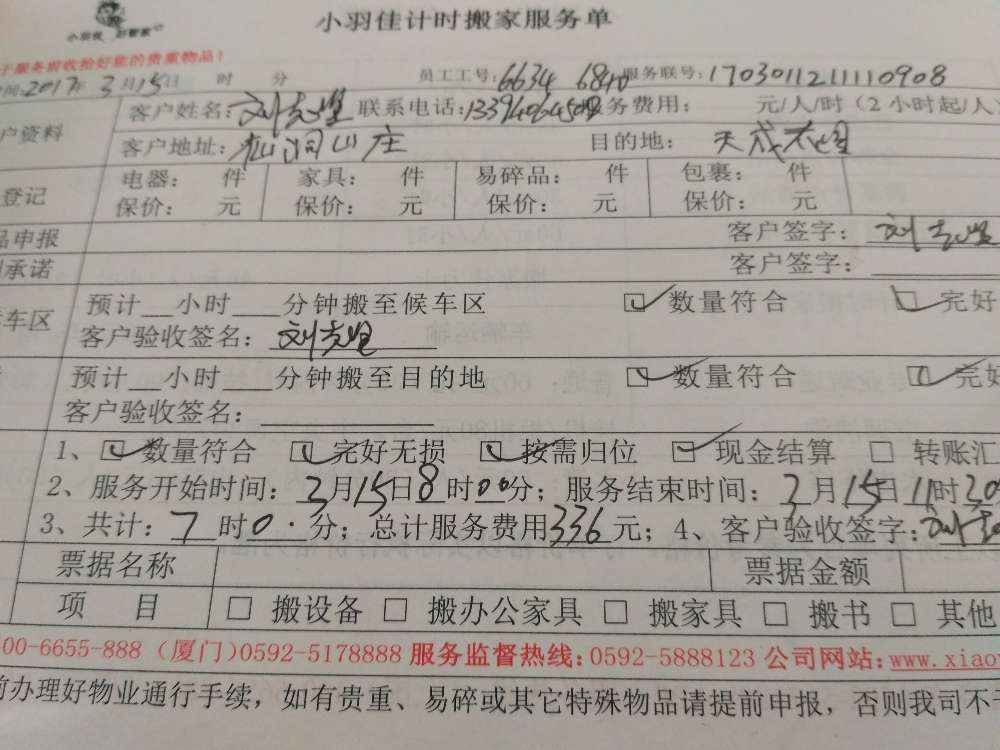 小羽佳计时搬家服务单
小羽佳 好管家
于服务前收拾好您的贵重物品!
间:2017年3月15日 时 分 员工工号:6634 6840 服务联号:1703011211110908
户资料 客户姓名:刘志坚 联系电话: 务费用: 元/人/时(2小时起/人
客户地址:仙洞山庄 目的地:天成
登记 电器: 件 家具: 件 易碎品: 件 包裹: 件
保价: 元 保价: 元 保价: 元 保价: 元
品申报 客户签字:刘志坚
承诺 客户签字:
车区 预计__小时___分钟搬至候车区 ☑数量符合 ☑完好
客户验收签名:刘志坚
预计__小时___分钟搬至目的地 ☑数量符合 ☑完好
客户验收签名:
1、☑数量符合 ☑完好无损 ☑按需归位 ☑现金结算 □转账汇
2、服务开始时间:3月15日8时00分;服务结束时间:3月15日11时30
3、共计:7时0分;总计服务费用336元;4、客户验收签字:刘志
票据名称 票据金额
项 目 □搬设备 □搬办公家具 □搬家具 □搬书 □其他
00-6655-888(厦门)0592-5178888 服务监督热线:0592-5888123 公司网站:www.xiao
前办理好物业通行手续,如有贵重、易碎或其它特殊物品请提前申报,否则我司不